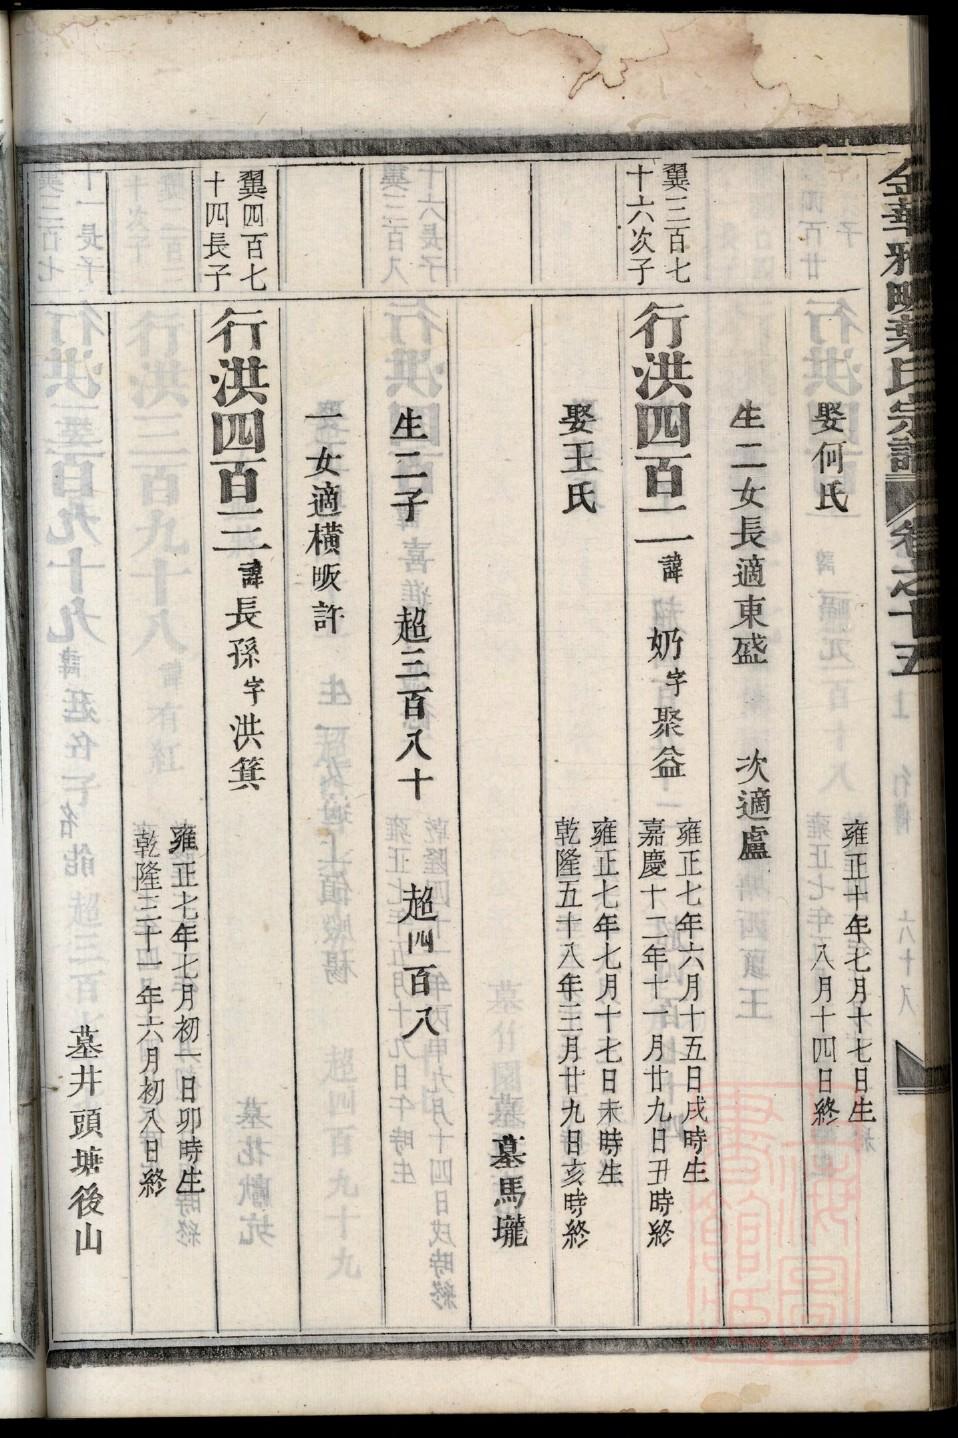 金華雅畈葉氏宗譜 卷之十五
娶何氏
雍正十年七月十七日生
八月十四日終
生二女長適東盛 次適盧
翼三百七
十六次子
行洪四百二 諱奶 字聚益
雍正七年六月十五日戌時生
嘉慶十二年十一月廿九日丑時終
娶王氏
雍正七年七月十七日未時生
乾隆五十八年三月廿九日亥時終
墓馬壠
生二子 超三百八十 超四百八
一女適橫畈許
翼四百七
十四長子
行洪四百三 諱長孫 字洪箕
雍正七年七月初一日卯時生
乾隆三十一年六月初八日終
墓井頭塘後山